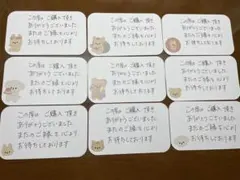 この度は ご購入 頂き
ありがとうございました
またのご縁を心より
お待ちしております
この度は ご購入 頂き
ありがとうございました
またのご縁を心より
お待ちしております
この度は ご購入 頂き
ありがとうございました
またのご縁を心より
お待ちしております
この度は ご購入 頂き
ありがとうございました
またのご縁を心より
お待ちしております
この度は ご購入 頂き
ありがとうございました
またのご縁を心より
お待ちしております
この度は ご購入 頂き
ありがとうございました
またのご縁を心より
お待ちしております
この度は ご購入 頂き
ありがとうございました
またのご縁を心より
お待ちしております
この度は ご購入 頂き
ありがとうございました
またのご縁を心より
お待ちしております
この度は ご購入 頂き
ありがとうございました
またのご縁を心より
お待ちしております